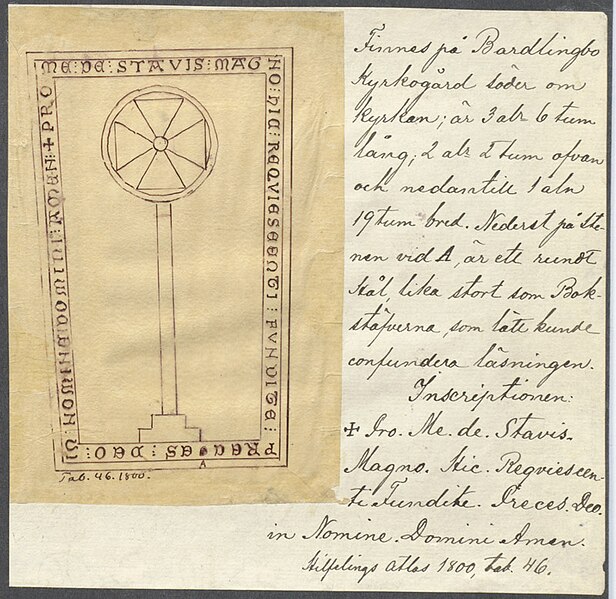 ✝ PRO
ME : DE : STAVIS : MAG
NO : HIC : REQVIESCENTI : FVNDITE :
PRECES : DEO
IN : NOMINE : DOMINI : AMEN :
A
Tab. 46. 1800.
Finnes på Bardlingbo
Kyrkogård söder om
kyrkan; är 3 aln 6 tum
lång; 2 aln 2 tum ofvan
och nedantill 1 aln
19 tum bred. Nederst på Ste-
nen vid A, är ett rundt
Hål, lika stort som Bok-
stäfverna, som lätt kunde
confundera läsningen.
Inscriptionen:
✝ Pro. Me. de. Stavis.
Magno. Hic. Reqviescen-
ti Fundite. Preces. Deo.
in Nomine. Domini Amen.
Hilfelings atlas 1800, tab. 46.